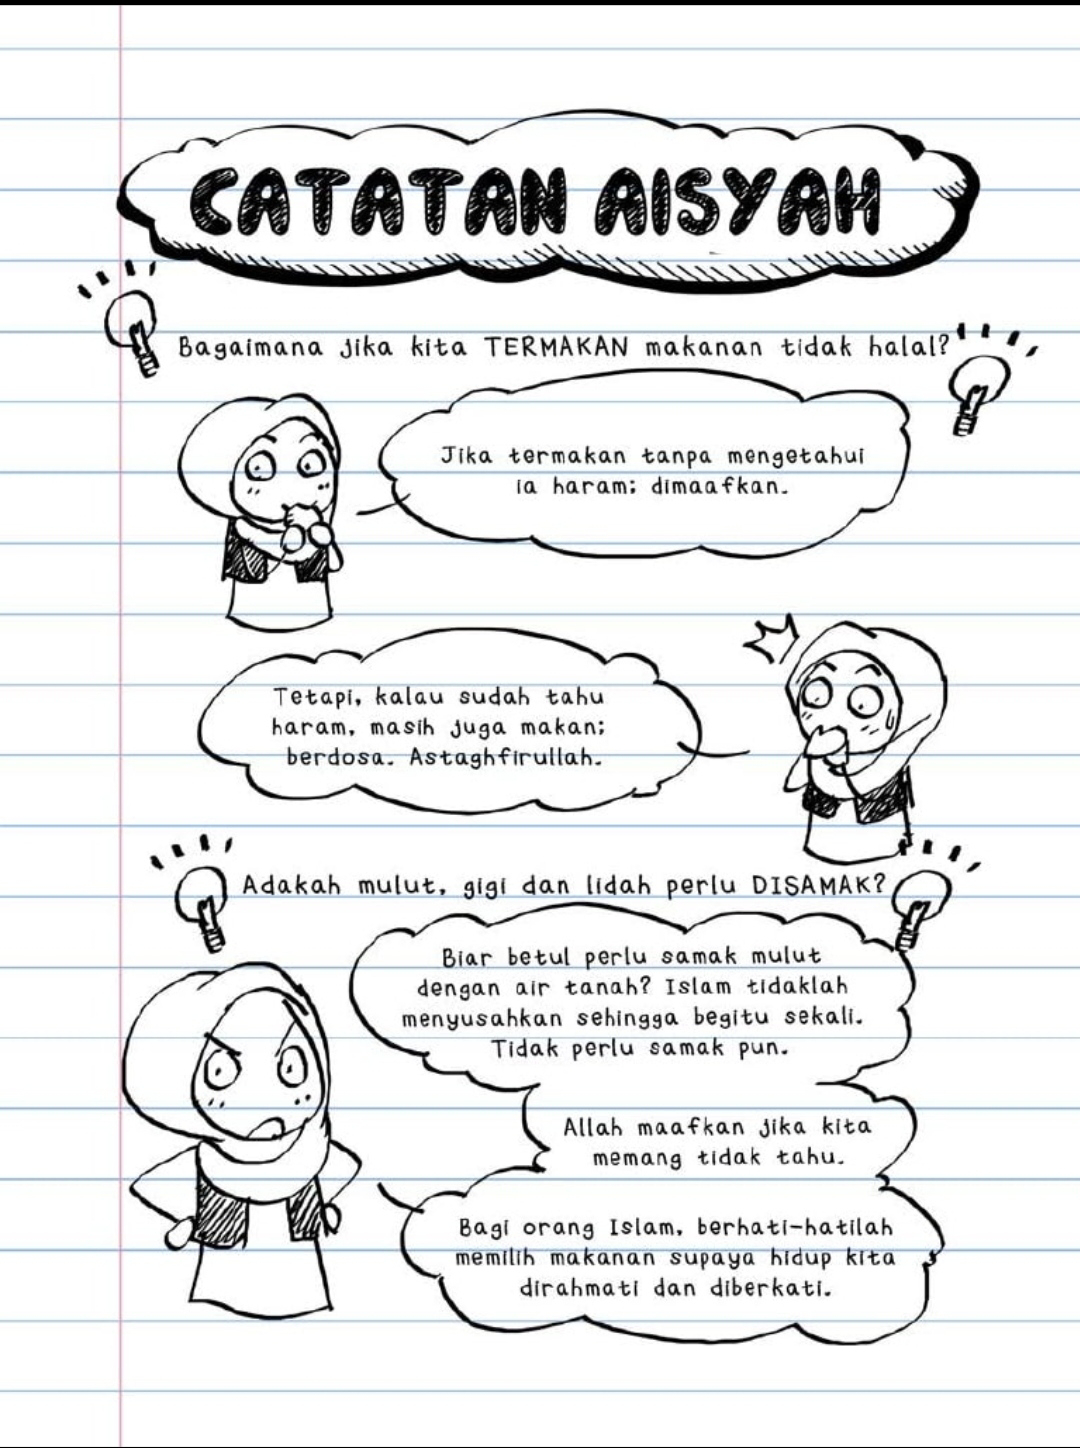 CATATAN AISYAH
Bagaimana jika kita TERMAKAN makanan tidak halal?
Jika termakan tanpa mengetahui
ia haram; dimaafkan.
Tetapi, kalau sudah tahu
haram, masih juga makan;
berdosa. Astaghfirullah.
Adakah mulut, gigi dan lidah perlu DISAMAK?
Biar betul perlu samak mulut
dengan air tanah? Islam tidaklah
menyusahkan sehingga begitu sekali.
Tidak perlu samak pun.
Allah maafkan jika kita
memang tidak tahu.
Bagi orang Islam, berhati-hatilah
memilih makanan supaya hidup kita
dirahmati dan diberkati.